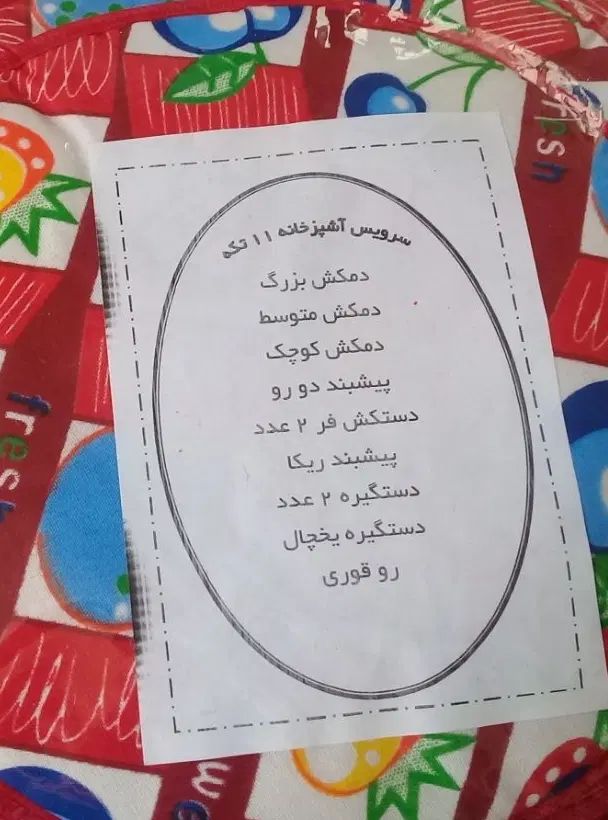 سرویس آشپزخانه ۱۱ تکه
دمکش بزرگ
دمکش متوسط
دمکش کوچک
پیشبند دو رو
دستکش فر ۲ عدد
پیشبند ریکا
دستگیره ۲ عدد
دستگیره یخچال
رو قوری
fresh
fresh